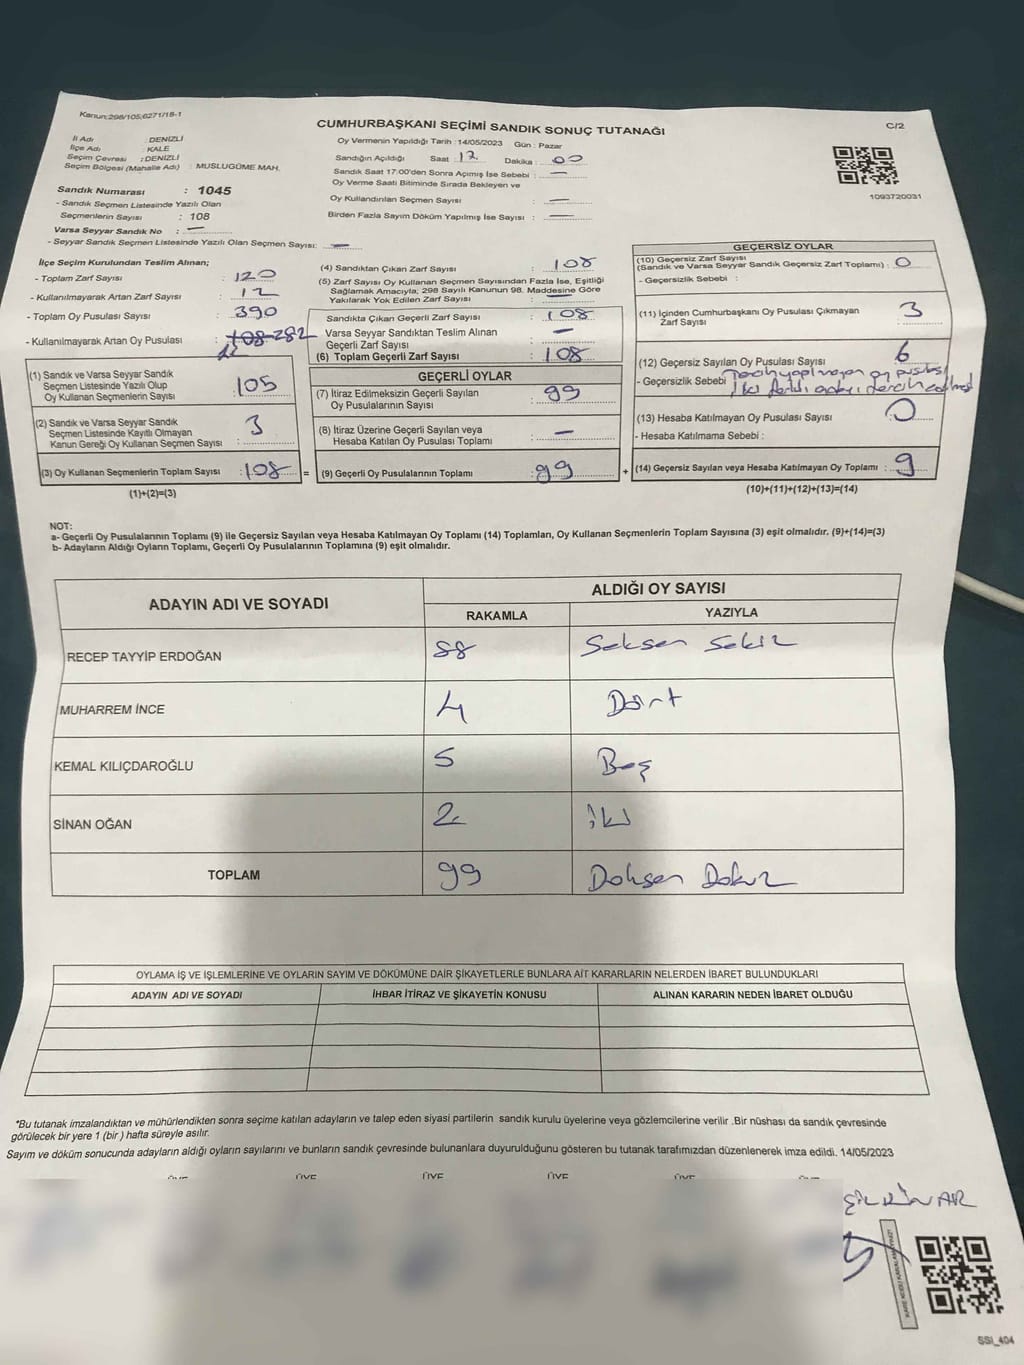 Kanun;298/105;6271/18-1
CUMHURBAŞKANI SEÇİMİ SANDIK SONUÇ TUTANAĞI
C/2
İl Adı : DENİZLİ
İlçe Adı : KALE
Seçim Çevresi : DENİZLİ
Seçim Bölgesi (Mahalle Adı) : MUSLUGÜME MAH.
Sandık Numarası : 1045
- Sandık Seçmen Listesinde Yazılı Olan
Seçmenlerin Sayısı : 108
Varsa Seyyar Sandık No : —
- Seyyar Sandık Seçmen Listesinde Yazılı Olan Seçmen Sayısı: —
Oy Vermenin Yapıldığı Tarih : 14/05/2023 Gün : Pazar
Sandığın Açıldığı Saat : 17 Dakika : 00
Sandık Saat 17:00'den Sonra Açımış İse Sebebi : —
Oy Verme Saati Bitiminde Sırada Bekleyen ve
Oy Kullandırılan Seçmen Sayısı : —
Birden Fazla Sayım Döküm Yapılmış İse Sayısı : —
1093720031
İlçe Seçim Kurulundan Teslim Alınan;
- Toplam Zarf Sayısı : 120
- Kullanılmayarak Artan Zarf Sayısı : 12
- Toplam Oy Pusulası Sayısı : 390
- Kullanılmayarak Artan Oy Pusulası : 108 282
(1) Sandık ve Varsa Seyyar Sandık
Seçmen Listesinde Yazılı Olup
Oy Kullanan Seçmenlerin Sayısı : 105
(2) Sandık ve Varsa Seyyar Sandık
Seçmen Listesinde Kayıtlı Olmayan
Kanun Gereği Oy Kullanan Seçmen Sayısı : 3
(3) Oy Kullanan Seçmenlerin Toplam Sayısı : 108
(1)+(2)=(3)
(4) Sandıktan Çıkan Zarf Sayısı : 108
(5) Zarf Sayısı Oy Kullanan Seçmen Sayısından Fazla İse, Eşitliği
Sağlamak Amacıyla; 298 Sayılı Kanunun 98. Maddesine Göre
Yakılarak Yok Edilen Zarf Sayısı : —
Sandıkta Çıkan Geçerli Zarf Sayısı : 108
Varsa Seyyar Sandıktan Teslim Alınan
Geçerli Zarf Sayısı : —
(6) Toplam Geçerli Zarf Sayısı : 108
GEÇERLİ OYLAR
(7) İtiraz Edilmeksizin Geçerli Sayılan
Oy Pusulalarının Sayısı : 99
(8) İtiraz Üzerine Geçerli Sayılan veya
Hesaba Katılan Oy Pusulası Toplamı : —
= (9) Geçerli Oy Pusulalarının Toplamı : 99 +
GEÇERSİZ OYLAR
(10) Geçersiz Zarf Sayısı
(Sandık ve Varsa Seyyar Sandık Geçersiz Zarf Toplamı) : 0
- Geçersizlik Sebebi :
(11) İçinden Cumhurbaşkanı Oy Pusulası Çıkmayan
Zarf Sayısı : 3
(12) Geçersiz Sayılan Oy Pusulası Sayısı : 6
- Geçersizlik Sebebi : Tercih yapılmayan oy pusulası
İki farklı adayı tercih edilmesi
(13) Hesaba Katılmayan Oy Pusulası Sayısı : 0
- Hesaba Katılmama Sebebi :
(14) Geçersiz Sayılan veya Hesaba Katılmayan Oy Toplamı : 9
(10)+(11)+(12)+(13)=(14)
NOT:
a- Geçerli Oy Pusulalarının Toplamı (9) ile Geçersiz Sayılan veya Hesaba Katılmayan Oy Toplamı (14) Toplamları, Oy Kullanan Seçmenlerin Toplam Sayısına (3) eşit olmalıdır. (9)+(14)=(3)
b- Adayların Aldığı Oyların Toplamı, Geçerli Oy Pusulalarının Toplamına (9) eşit olmalıdır.
ADAYIN ADI VE SOYADI ALDIĞI OY SAYISI
RAKAMLA YAZIYLA
RECEP TAYYİP ERDOĞAN 88 Seksen Sekiz
MUHARREM İNCE 4 Dört
KEMAL KILIÇDAROĞLU 5 Beş
SİNAN OĞAN 2 iki
TOPLAM 99 Doksan Dokuz
OYLAMA İŞ VE İŞLEMLERİNE VE OYLARIN SAYIM VE DÖKÜMÜNE DAİR ŞİKAYETLERLE BUNLARA AİT KARARLARIN NELERDEN İBARET BULUNDUKLARI
ADAYIN ADI VE SOYADI İHBAR İTİRAZ VE ŞİKAYETİN KONUSU ALINAN KARARIN NEDEN İBARET OLDUĞU
*Bu tutanak imzalandıktan ve mühürlendikten sonra seçime katılan adayların ve talep eden siyasi partilerin sandık kurulu üyelerine veya gözlemcilerine verilir .Bir nüshası da sandık çevresinde
görülecek bir yere 1 (bir ) hafta süreyle asılır.
Sayım ve döküm sonucunda adayların aldığı oyların sayılarını ve bunların sandık çevresinde bulunanlara duyurulduğunu gösteren bu tutanak tarafımızdan düzenlenerek imza edildi. 14/05/2023
ÜYE ÜYE ÜYE ÜYE ÜYE
SSI_404